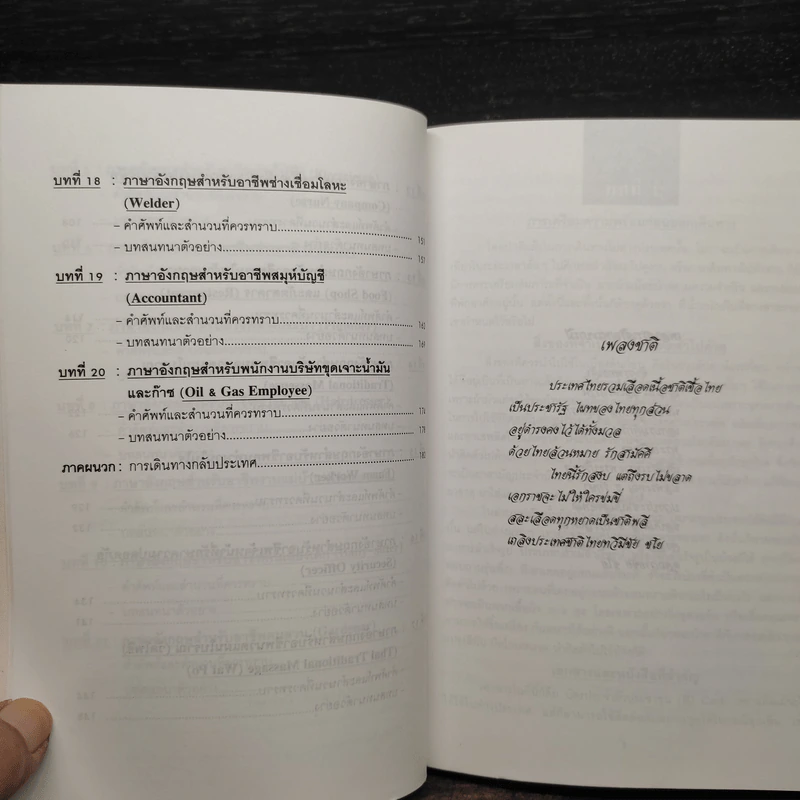 บทที่ 18 : ภาษาอังกฤษสำหรับอาชีพช่างเชื่อมโลหะ
(Welder)
– คำศัพท์และสำนวนที่ควรทราบ
– บทสนทนาตัวอย่าง
บทที่ 19 : ภาษาอังกฤษสำหรับอาชีพสมุห์บัญชี
(Accountant)
– คำศัพท์และสำนวนที่ควรทราบ
– บทสนทนาตัวอย่าง
บทที่ 20 : ภาษาอังกฤษสำหรับพนักงานบริษัทขุดเจาะน้ำมัน
และก๊าซ (Oil & Gas Employee)
– คำศัพท์และสำนวนที่ควรทราบ
– บทสนทนาตัวอย่าง
ภาคผนวก : การเดินทางกลับประเทศ
เพลงชาติ
ประเทศไทยรวมเลือดเนื้อชาติเชื้อไทย
เป็นประชารัฐ ไผทของไทยทุกส่วน
อยู่ดำรงคงไว้ได้ทั้งมวล
ด้วยไทยล้วนหมาย รักสามัคคี
ไทยนี้รักสงบ แต่ถึงรบไม่ขลาด
เอกราชจะไม่ให้ใครข่มขี่
สละเลือดทุกหยาดเป็นชาติพลี
เถลิงประเทศชาติไทยทวีมีชัย ชโย